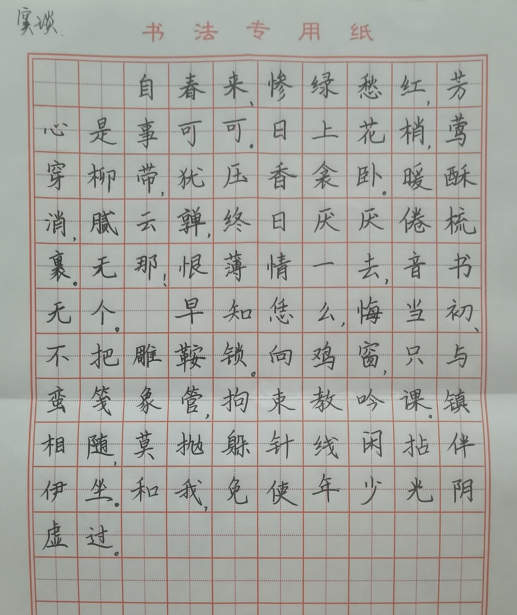 实谈
书法专用纸
自春来、惨绿愁红,芳
心是事可可。日上花梢,莺
穿柳带,犹压香衾卧。暖酥
消,腻云亸,终日厌厌倦梳
裹。无那!恨薄情一去,音书
无个。 早知恁么,悔当初、
不把雕鞍锁。向鸡窗,只与
蛮笺象管,拘束教吟课。镇
相随,莫抛躲针线闲拈伴
伊坐。和我,免使年少光阴
虚过。